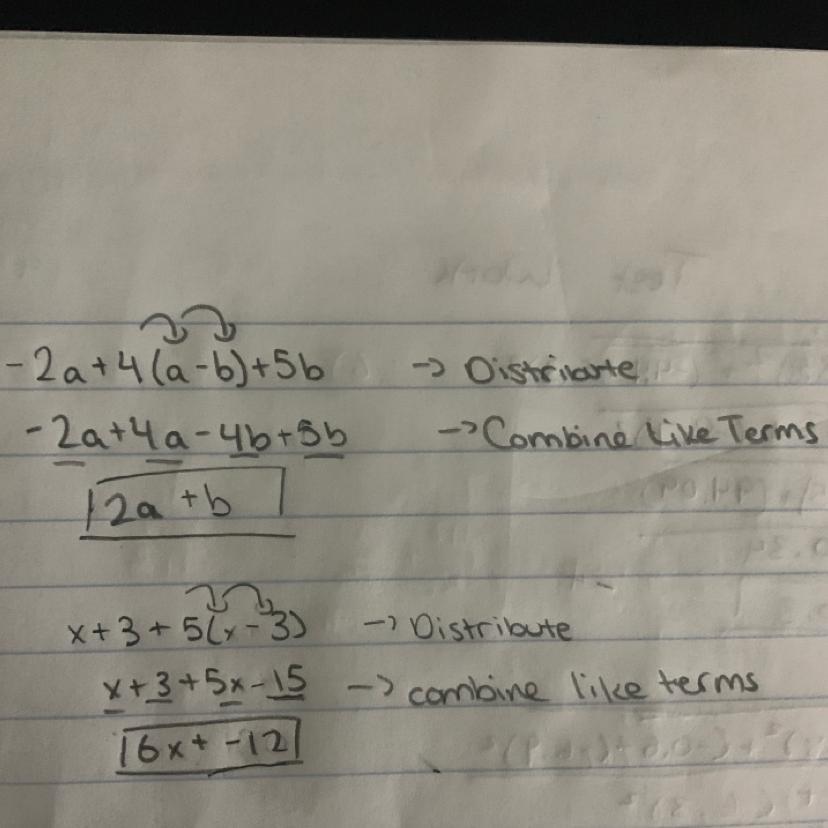 -2a+4(a-b)+5b → Distribute
-2a+4a-4b+5b → Combine like Terms
2a+b
x+3+5(x-3) → Distribute
x+3+5x-15 → combine like terms
6x+-12